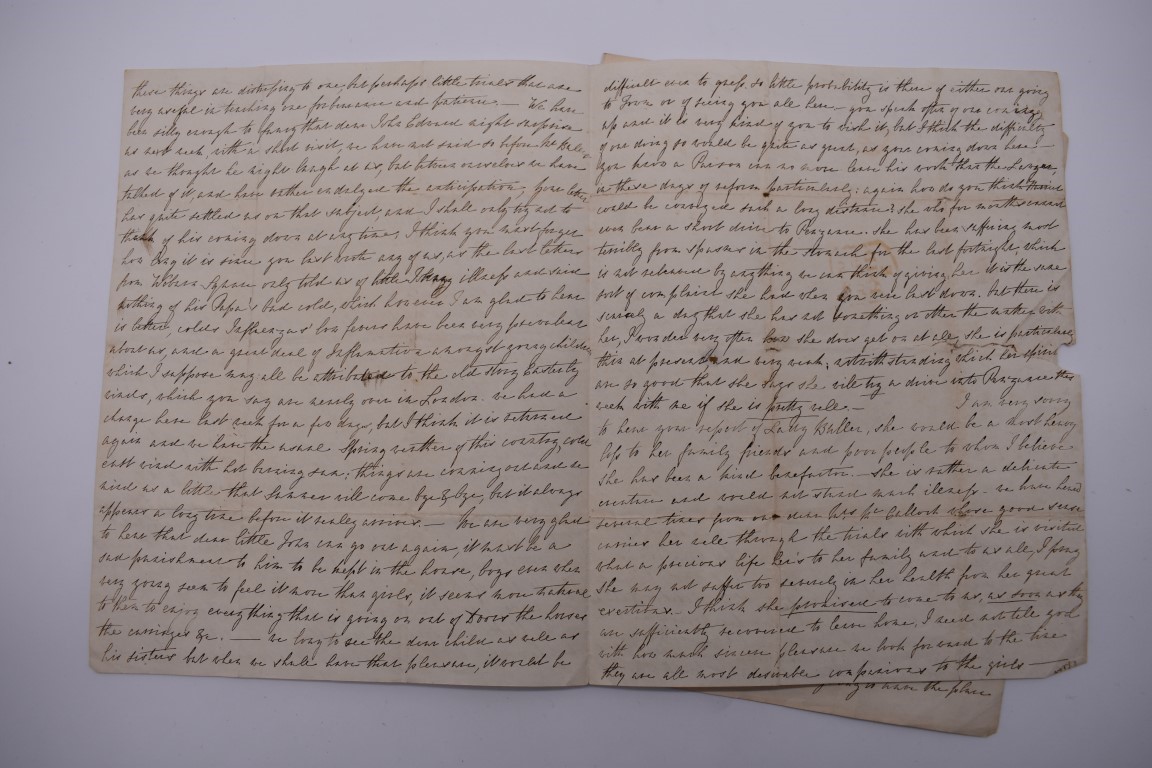 these things are distressing to one, but perhaps little trials that are
very useful in teaching one forbearance and patience. — We have
been silly enough to fancy that dear John Edward might surprise
us next week, with a short visit, we have not said so before Mr Hale
as we thought he might laugh at us, but between ourselves we have
talked of it, and have rather indulged the anticipation, your letter
has quite settled us on that subject, and I shall only try not to
think of his coming down at any time, I think you must forget
how long it is since you last wrote any of us, as the last letters
from Woburn Square only told us of little illness and said
nothing of his Papa's bad cold, which however I am glad to hear
is better, colds Influenzas' low fevers have been very prevalent
about us, and a great deal of Inflamation amongst young children
which I suppose may all be attributed to the old story Easterly
winds, which you say are nearly over in London. we had a
change here last week for a few days, but I think it is returned
again and we have the usual Spring weather of this country, cold
east wind with hot burning sun: things are coming out and re
mind us a little that Summer will come bye & bye, but it always
appears a long time before it really arrives. — We are very glad
to hear that dear little John can go out again, it must be a
sad punishment to him to be kept in the house, boys even when
very young seem to feel it more than girls, it seems more natural
to them to enjoy everything that is going on out of Doors the horses
the carriages &c. — we long to see the dear child as well as
his sisters but when we shall have that pleasure, it would be
difficult even to guess, so little probability is there of either one going
to Town or of seeing you all here — you speak often of one coming
up and it is very kind of you to wish it, but I think the difficulty
of one doing so would be quite as great, as your coming down here!
you know a Parson can no more leave his work than the Lawyer,
in these days of reform particularly; again how do you think
could be conveyed such a long distance? she who for months cannot
even bear a short drive to Penzance. she has been suffering most
terribly from spasms in the stomach for the last fortnight, which
is not relieved by anything we can think of giving her it is the same
sort of complaint she had when you were last down. but there is
scarcely a day that she has not something or other the matter with
her, I wonder very often how she does get on at all, she is particularly
thin at present and very weak, notwithstanding which her spirits
are so good that she says she will try a drive into Penzance this
week with me if she is pretty well. — I am very sorry
to hear your report of Lady Buller, she would be a most heavy
loss to her family friends and poor people to whom I believe
she has been a kind benefactor. — she is rather a delicate
creature and would not stand much illness. we have heard
several times from our dear Mrs Mc Culloch whose good sense
carries her well through the trials with which she is visited
what a precious life her's to her family and to us all, I pray
she may not suffer too severely in her health from her great
exertions. I think she promised to come to us, as soon as they
are sufficiently recovered to leave home, I need not tell you
with how much sincere pleasure we look forward to the time
they are all most desirable companions to the girls —
the place